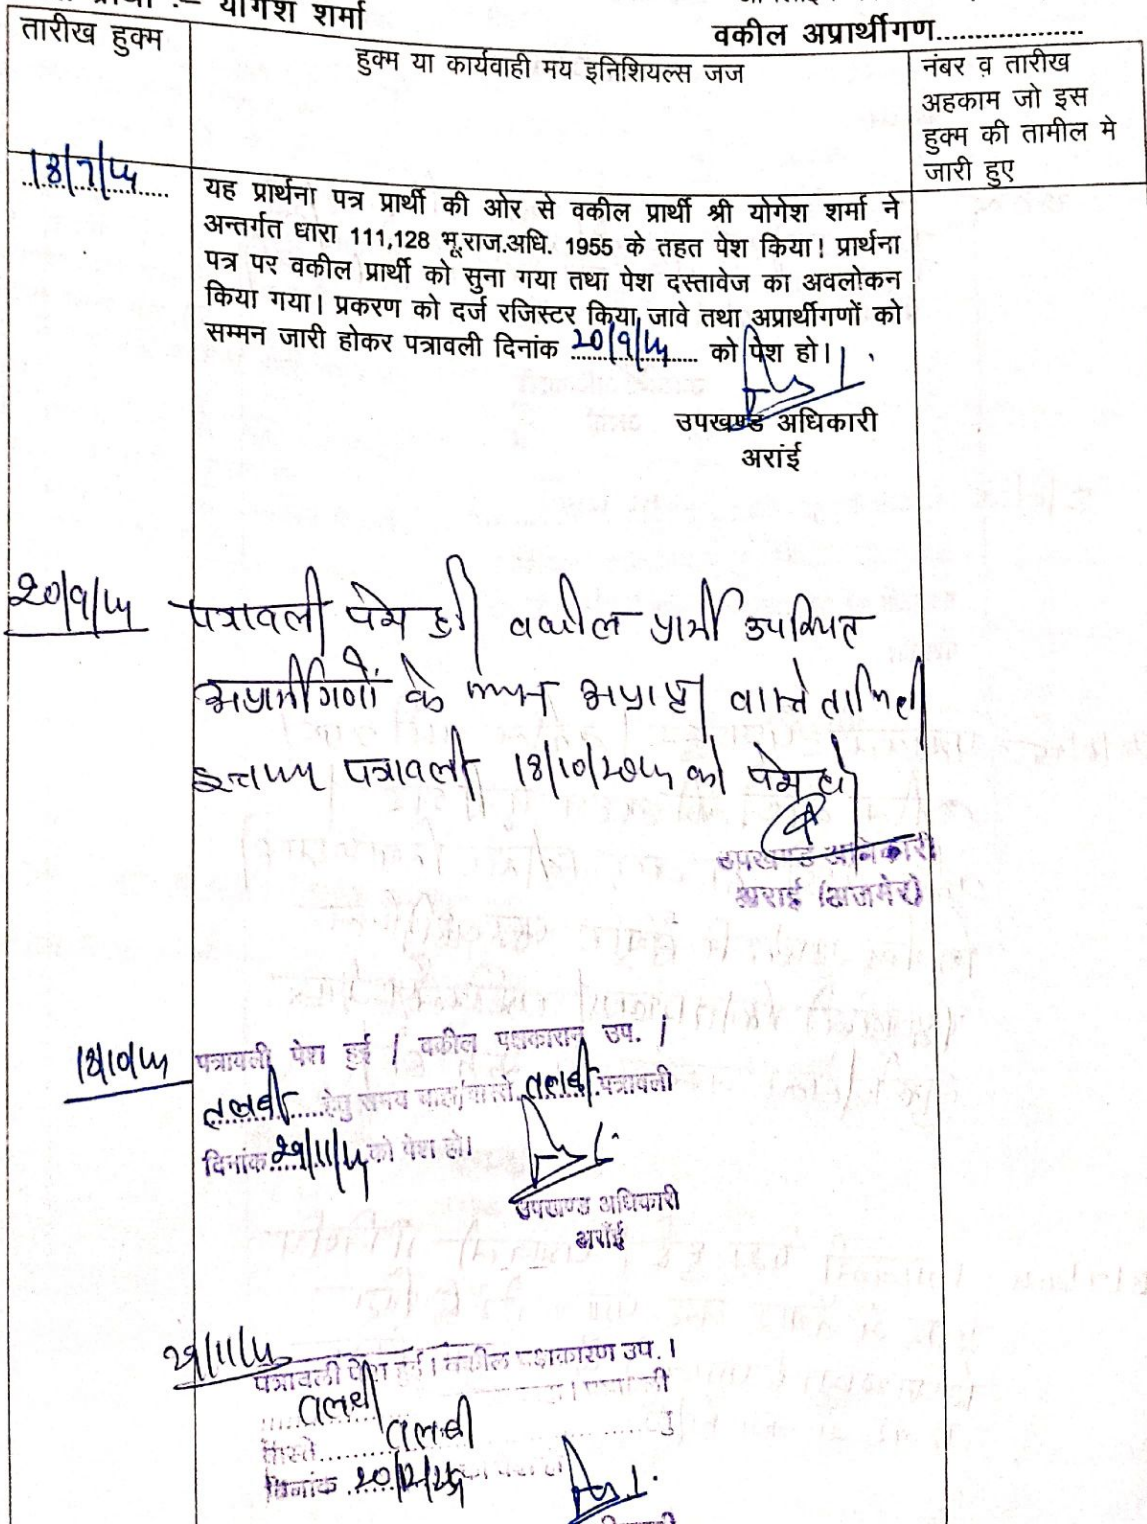 योगेश शर्मा
वकील अप्रार्थीगण....................
तारीख हुक्म
हुक्म या कार्यवाही मय इनिशियल्स जज
नंबर व तारीख
अहकाम जो इस
हुक्म की तामील मे
जारी हुए
यह प्रार्थना पत्र प्रार्थी की ओर से वकील प्रार्थी श्री योगेश शर्मा ने
अन्तर्गत धारा 111,128 भू.राज.अधि. 1955 के तहत पेश किया! प्रार्थना
पत्र पर वकील प्रार्थी को सुना गया तथा पेश दस्तावेज का अवलोकन
किया गया। प्रकरण को दर्ज रजिस्टर किया जावे तथा अप्रार्थीगणों को
सम्मन जारी होकर पत्रावली दिनांक को पेश हो।
उपखण्ड अधिकारी
अरांई
पत्रावली पेश हुई वकील प्रार्थी उपस्थित
अप्रार्थीगणों के अप्राप्त वास्ते
पत्रावली को पेश हो
उपखण्ड अधिकारी
अराई (अजमेर)
पत्रावली पेश हुई / वकील पक्षकारान उप. /
तलबी हेतु समय चाहा/वास्ते तलबी पत्रावली
दिनांक 29/11/ को पेश हो।
उपखण्ड अधिकारी
अराँई
पत्रावली पेश हुई। वकील पक्षकारण उप.।
तलबी
वास्ते तलबी
दिनांक